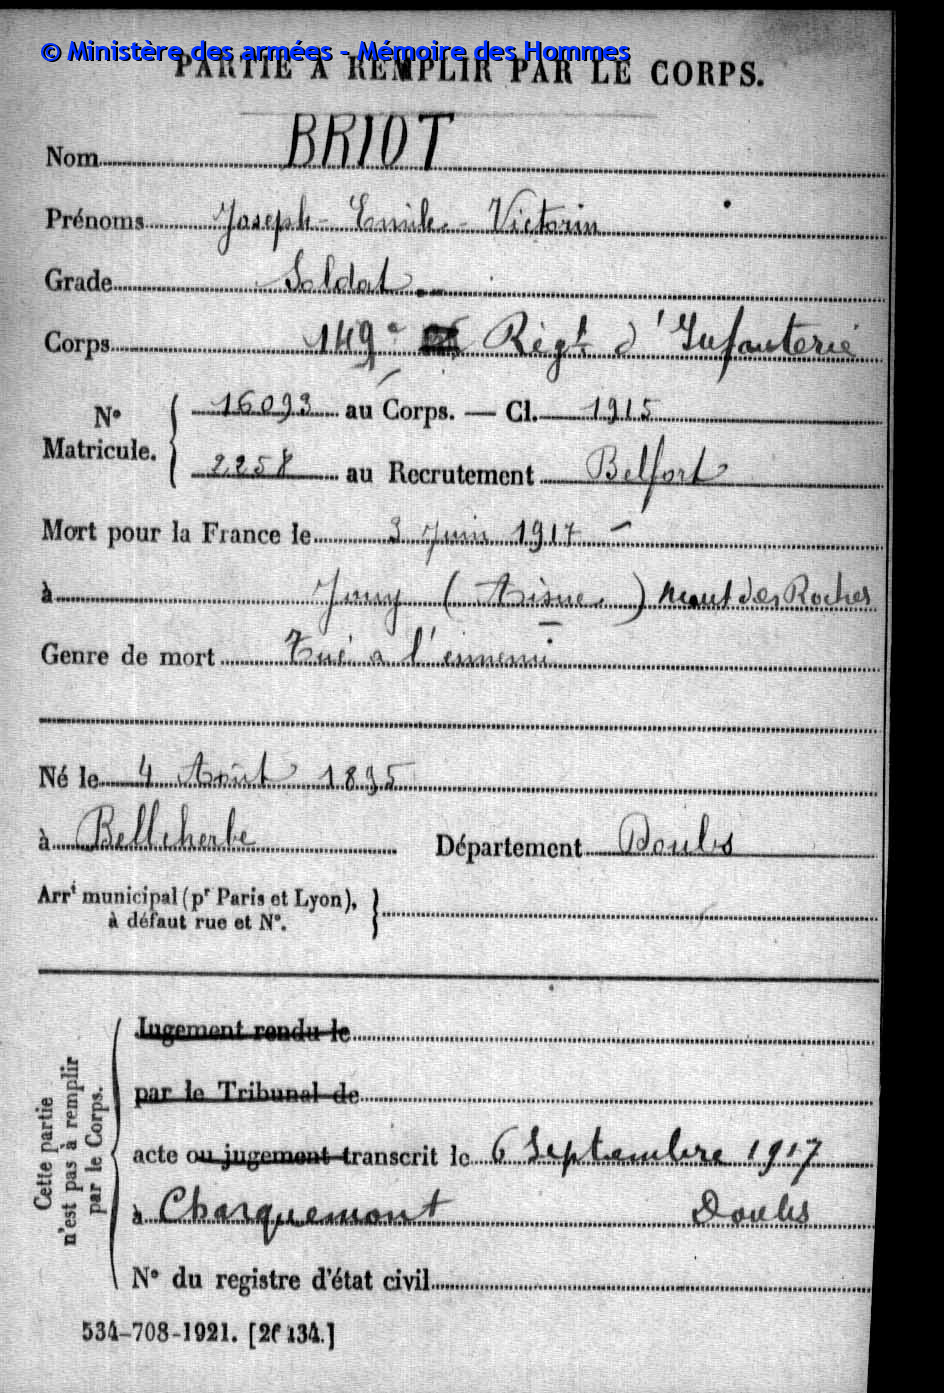 © Ministère des armées - Mémoire des Hommes
PARTIE A REMPLIR PAR LE CORPS.
Nom BRIOT
Prénoms Joseph - Emile - Victorin
Grade Soldat
Corps 149e Régt d'Infanterie
N° Matricule. { 16093 au Corps. — Cl. 1915
2258 au Recrutement Belfort
Mort pour la France le 3 Juin 1917
à Jouy (Aisne) Mont des Roches
Genre de mort Tué à l'ennemi
Né le 4 Août 1895
à Belleherbe Département Doubs
Arrt municipal (pr Paris et Lyon),
à défaut rue et N°.
Cette partie
n'est pas à remplir
par le Corps.
Jugement rendu le
par le Tribunal de
acte ou jugement transcrit le 6 Septembre 1917
à Charquemont Doubs
N° du registre d'état civil
534-708-1921.